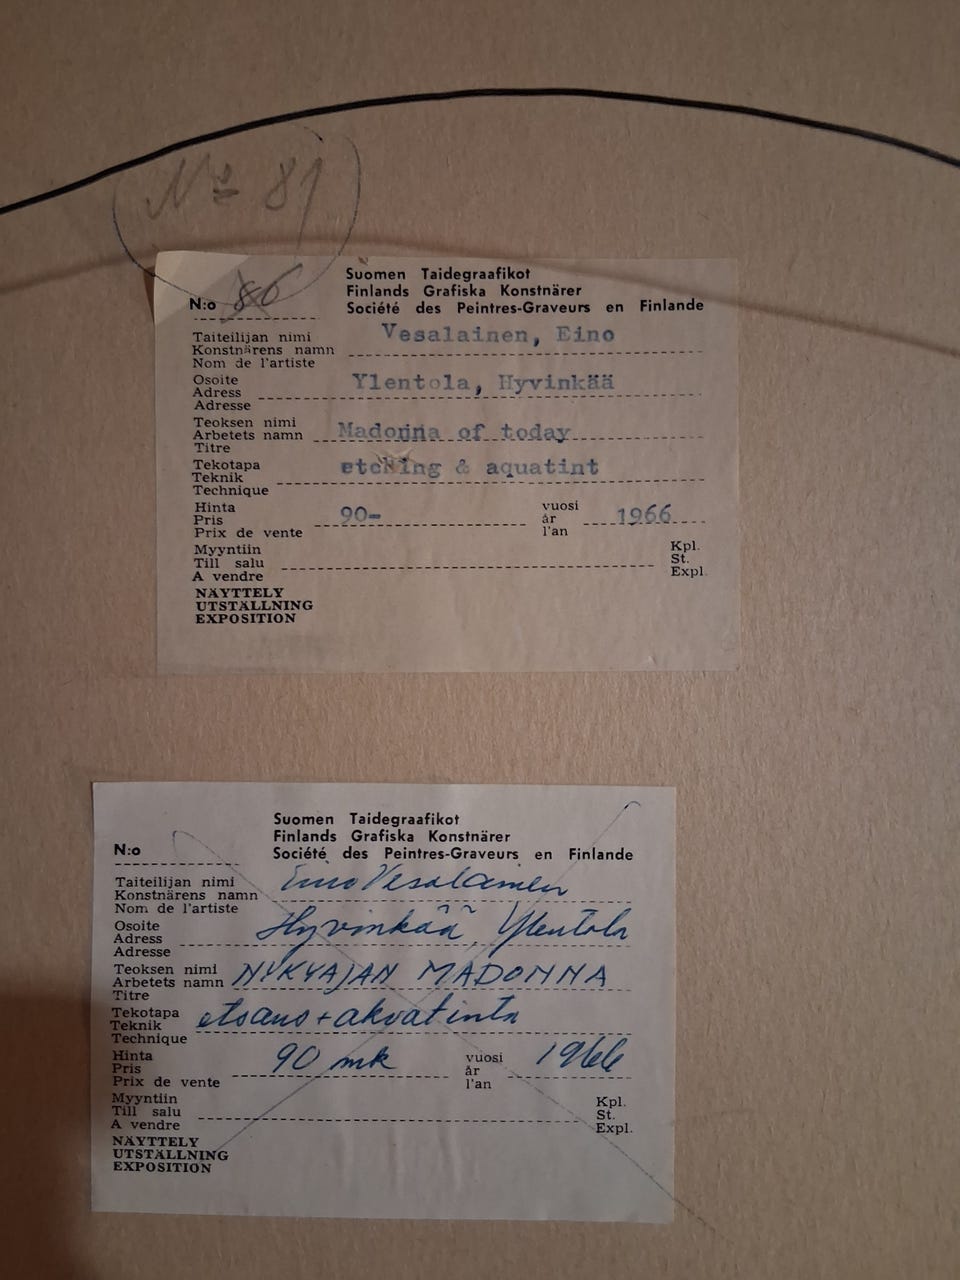 Nº 81
N:o 86
Suomen Taidegraafikot
Finlands Grafiska Konstnärer
Société des Peintres-Graveurs en Finlande
Taiteilijan nimi
Konstnärens namn
Nom de l'artiste
Vesalainen, Eino
Osoite
Adress
Adresse
Ylentola, Hyvinkää
Teoksen nimi
Arbetets namn
Titre
Madonna of today
Tekotapa
Teknik
Technique
etching & aquatint
Hinta
Pris
Prix de vente
90-
vuosi
år
l'an
1966
Myyntiin
Till salu
A vendre
Kpl.
St.
Expl.
NÄYTTELY
UTSTÄLLNING
EXPOSITION
N:o
Suomen Taidegraafikot
Finlands Grafiska Konstnärer
Société des Peintres-Graveurs en Finlande
Taiteilijan nimi
Konstnärens namn
Nom de l'artiste
Eino Vesalainen
Osoite
Adress
Adresse
Hyvinkää, Ylentola
Teoksen nimi
Arbetets namn
Titre
NYKYAJAN MADONNA
Tekotapa
Teknik
Technique
etsaus + akvatinta
Hinta
Pris
Prix de vente
90 mk
vuosi
år
l'an
1966
Myyntiin
Till salu
A vendre
Kpl.
St.
Expl.
NÄYTTELY
UTSTÄLLNING
EXPOSITION